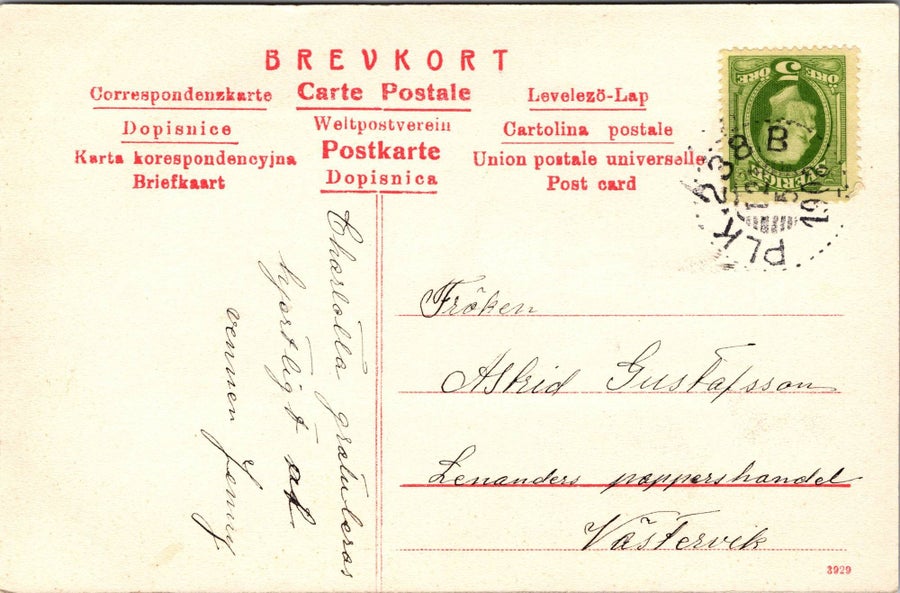 BREVKORT
Correspondenzkarte
Carte Postale
Levelezö-Lap
Dopisnice
Weltpostverein
Cartolina postale
Karta korespondencyjna
Postkarte
Union postale universelle
Briefkaart
Dopisnica
Post card
5
ÖRE
ÖRE
SVERIGE
PLK. 238 B
Charlotta gratuleras
hjertligt af
vennen Jenny
Fröken
Astrid Gustafsson
Lenanders pappershandel
Västervik
3929